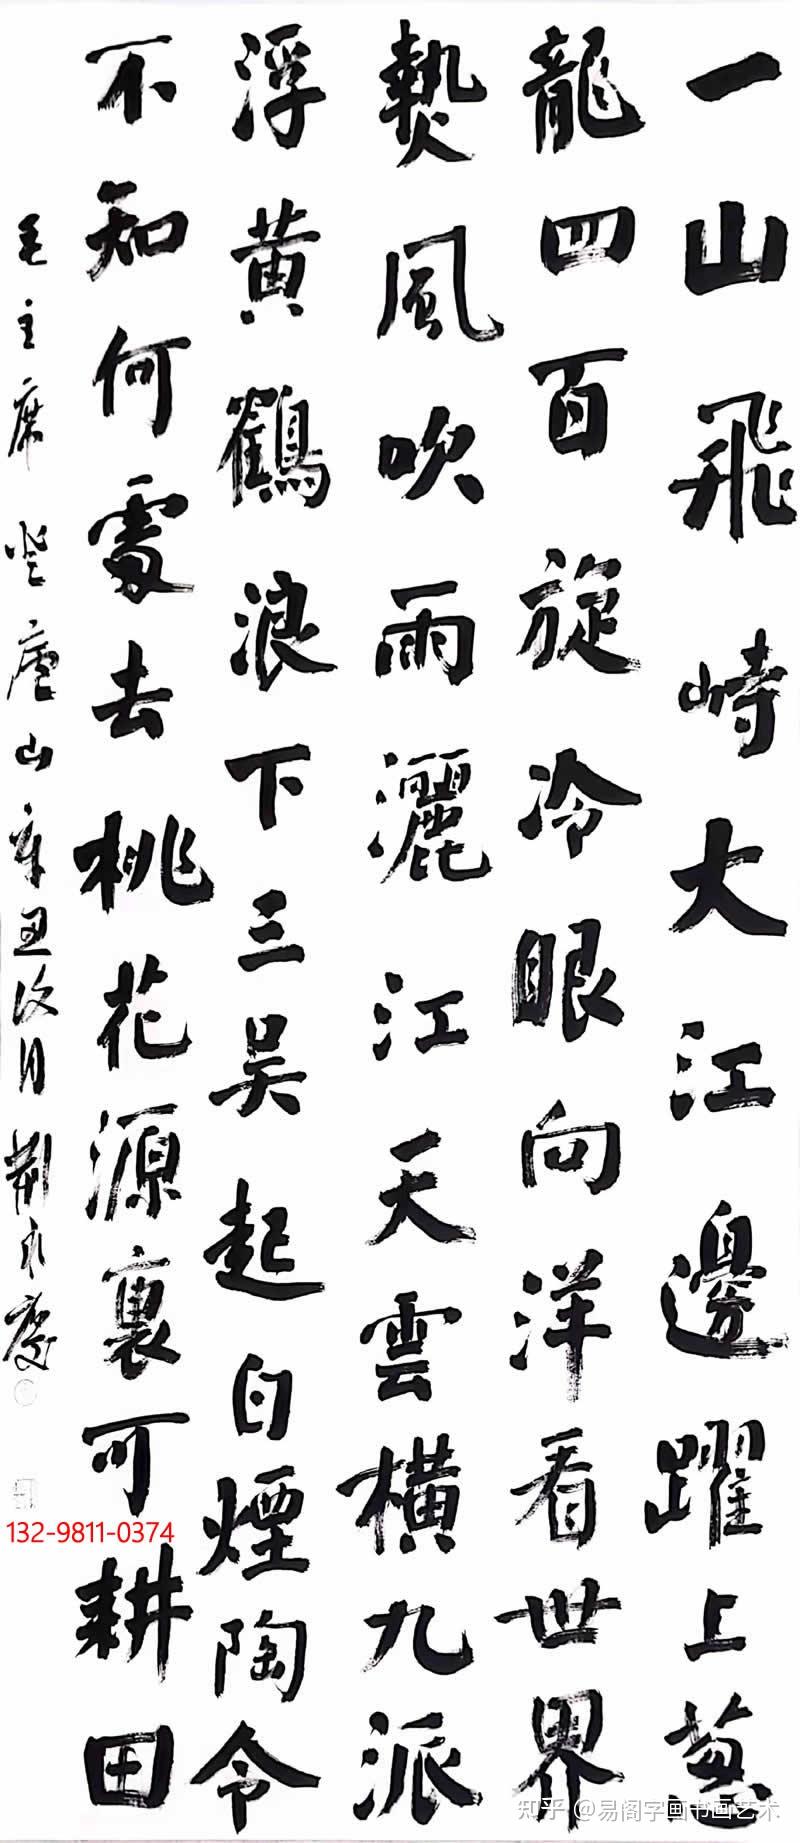 一山飛峙大江邊躍上葱
龍四百旋冷眼向洋看世界
熱風吹雨灑江天雲橫九派
浮黄鶴浪下三吴起白煙陶令
不知何處去桃花源裏可耕田
毛主席登廬山辛丑月荆永慶
132-9811-0374
知乎 @易阁字画书画艺术